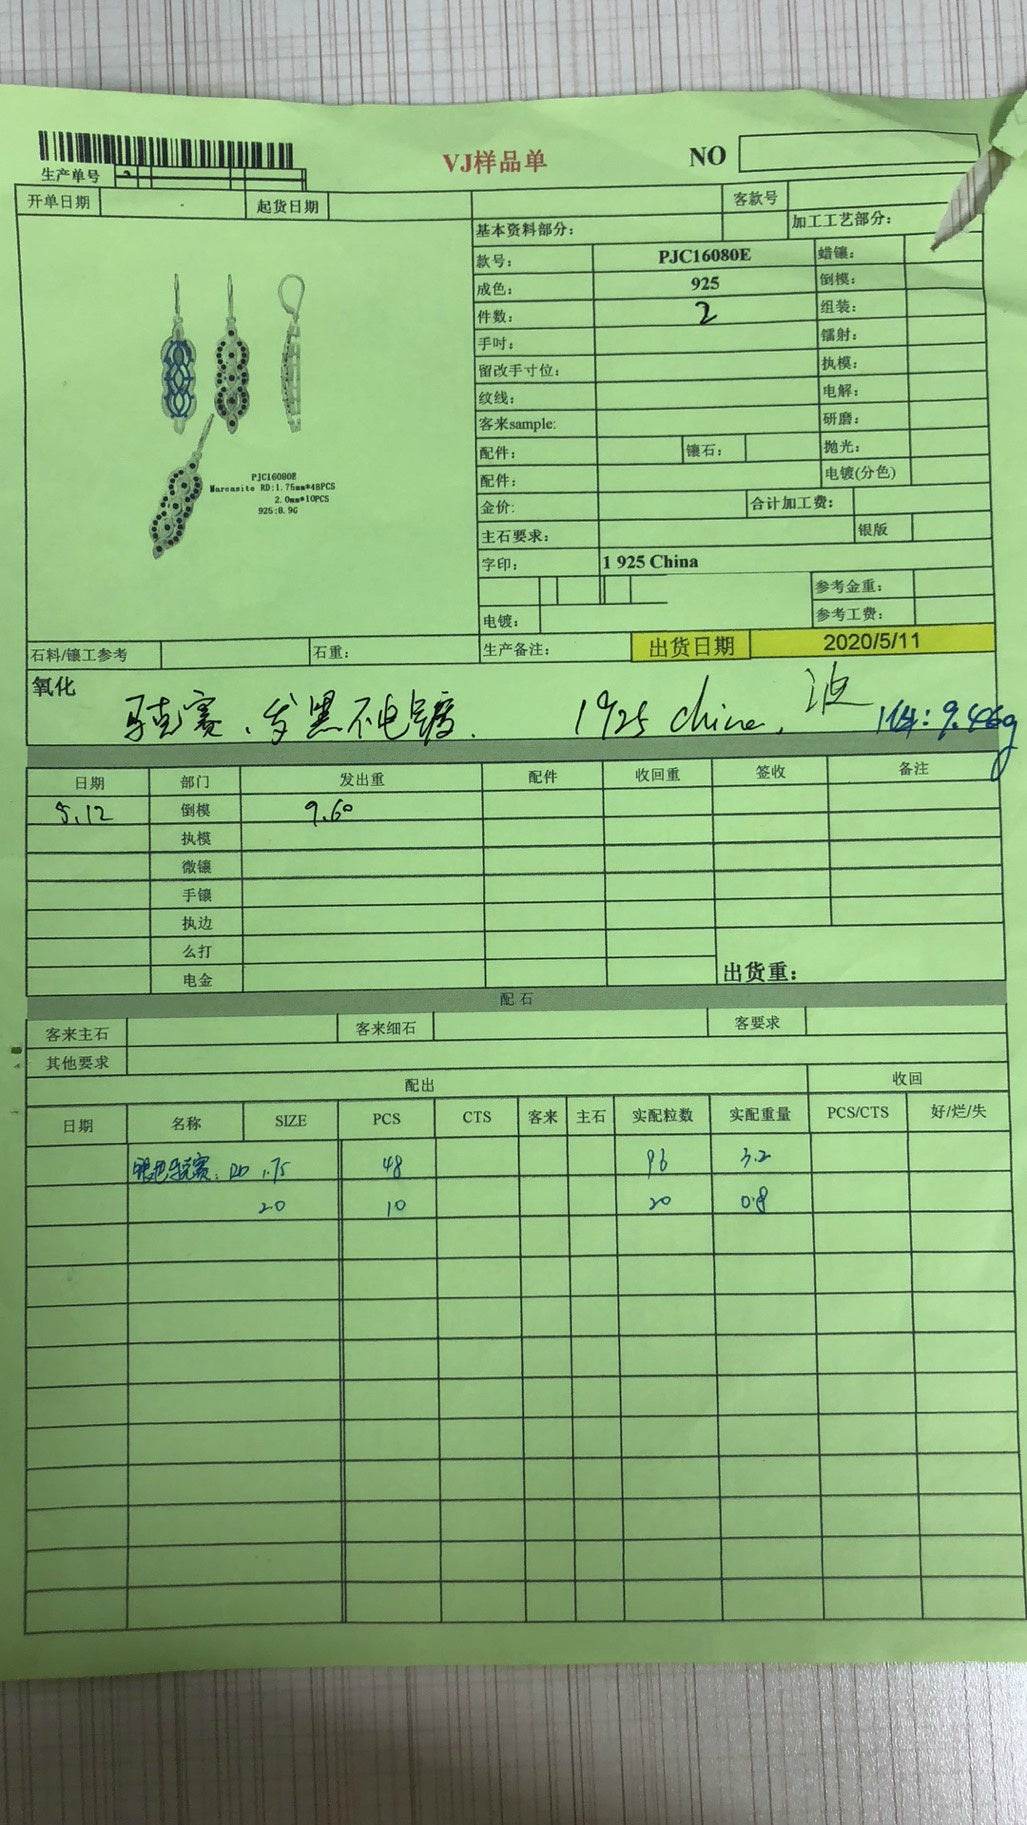 VJ样品单
NO
生产单号
开单日期 起货日期 客款号
基本资料部分： 加工工艺部分：
款号： PJC16080E 蜡镶：
成色： 925 倒模：
件数： 2 组装：
手吋： 镭射：
留改手寸位： 执模：
纹线： 电解：
客来sample: 研磨：
配件： 镶石： 抛光：
配件： 电镀(分色)
金价: 合计加工费：
主石要求： 银版
字印： 1 925 China
参考金重：
电镀： 参考工费：
PJC16080E
Marcasite RD:1.75mm*48PCS
2.0mm*10PCS
925:8.9G
石料/镶工参考 石重： 生产备注： 出货日期 2020/5/11
氧化
马克赛、发黑不电镀. 1925 china, 波 1件: 9.46g
日期 部门 发出重 配件 收回重 签收 备注
5.12 倒模 9.60
执模
微镶
手镶
执边
么打
电金
出货重：
配 石
客来主石 客来细石 客要求
其他要求
配出 收回
日期 名称 SIZE PCS CTS 客来 主石 实配粒数 实配重量 PCS/CTS 好/烂/失
马克赛: RD 1.75 48 96 3.2
2.0 10 20 0.8